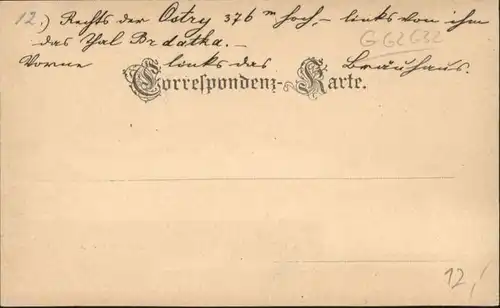 12.) Rechts der Ostry 376 m hoch, – links von ihm
das Thal Brdatka. –
Vorne links das Bräuhaus.
GG2632
Correspondenz-Karte.
12,